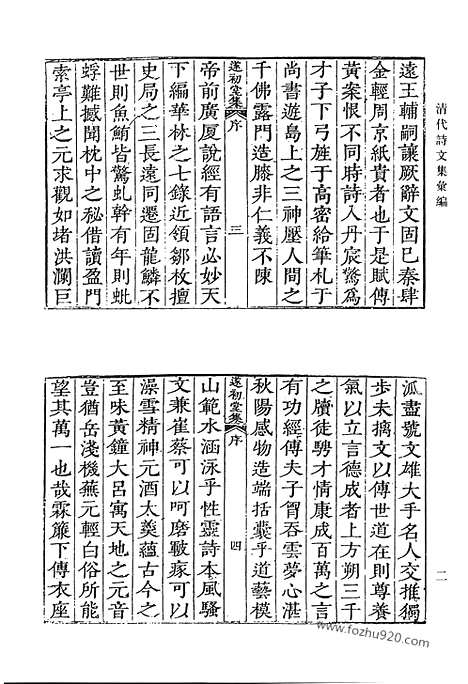 清代詩文集彙編
遠王輔嗣讓厥辭文固已秦肆
金輕周京紙貴者也于是賦傳
黃案恨不同時詩入丹宸驚爲
才子下弓旌于高密給筆札于
尚書遊島上之三神壓人間之
千佛露門造膝非仁義不陳
遂初堂集 序 三
帝前廣厦說經有語言必妙天
下編華林之七錄近領鄒枚擅
史局之三長遠同遷固龍鱗不
世則魚鮪皆驚虬幹有年則蚍
蜉難撼聞枕中之秘借讀盈門
索亭上之元求觀如堵洪瀾巨
派盡號文雄大手名人交推獨
步夫摛文以傳世道在則尊養
氣以立言德成者上方朔三千
之牘徒騁才情康成百萬之言
有功經傳夫子胷吞雲夢心湛
秋陽感物造端括囊乎道藝模
遂初堂集 序 四
山範水涵泳乎性靈詩本風騷
文兼崔蔡可以呵磨皸瘃可以
澡雪精神元酒太羹蘊古今之
至味黃鐘大呂寓天地之元音
豈猶岳淺機蕪元輕白俗所能
望其萬一也哉霖簾下傳衣座
二
www.fozhu920.com